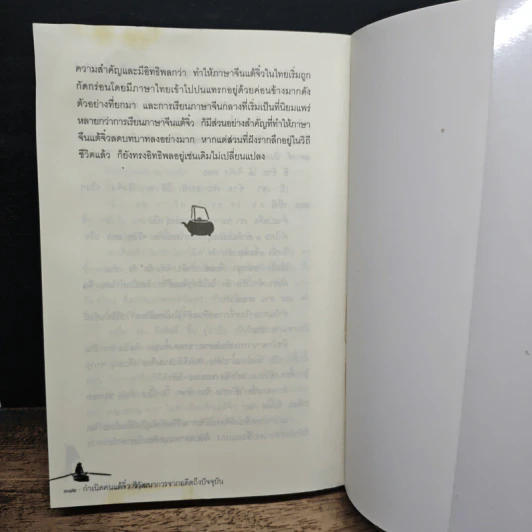 ความสำคัญและมีอิทธิพลกว่า ทำให้ภาษาจีนแต้จิ๋วในไทยเริ่มถูก
กัดกร่อนโดยมีภาษาไทยเข้าไปปนแทรกอยู่ด้วยค่อนข้างมากดัง
ตัวอย่างที่ยกมา และการเรียนภาษาจีนกลางที่เริ่มเป็นที่นิยมแพร่
หลายกว่าการเรียนภาษาจีนแต้จิ๋ว ก็มีส่วนอย่างสำคัญที่ทำให้ภาษา
จีนแต้จิ๋วลดบทบาทลงอย่างมาก หากแต่ส่วนที่ฝังรากลึกอยู่ในวิถี
ชีวิตแล้ว ก็ยังทรงอิทธิพลอยู่เช่นเดิมไม่เปลี่ยนแปลง
กำเนิดคนแต้จิ๋ว วิวัฒนาการจากอดีตถึงปัจจุบัน